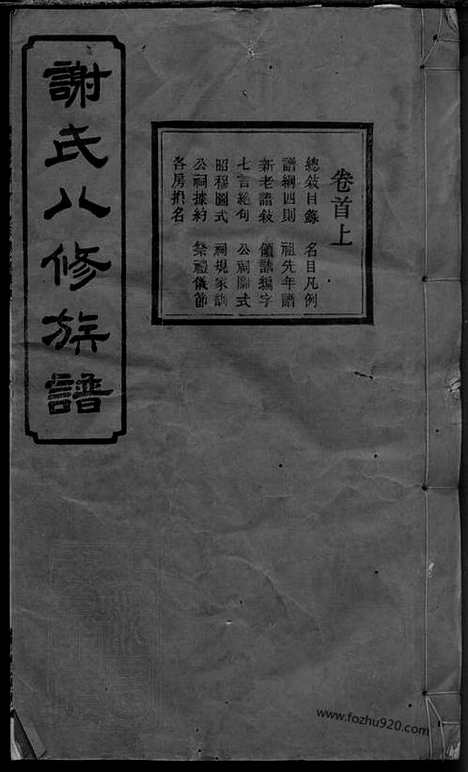 謝氏八修族譜
卷首上
總敘目錄 名目凡例
譜綱四則 祖先年譜
新老譜敘 領譜編字
七言絕句 公祠圖式
昭穆圖式 祠規家訓
公祠據約 祭禮儀節
各房捐名
www.fozhu920.com